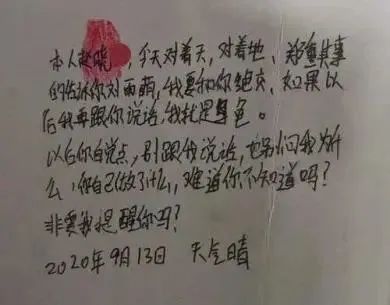 本人赵晓，今天对着天，对着地、郑重其事
的告诉你对雨萌，我要和你绝交、如果以
后我再跟你说话，我就是色。
以后你自觉点，别跟我说话，也别问我为什
么，你自己做了什么，难道你不知道吗？
非要我提醒你吗？
2020年9月13日 天气晴